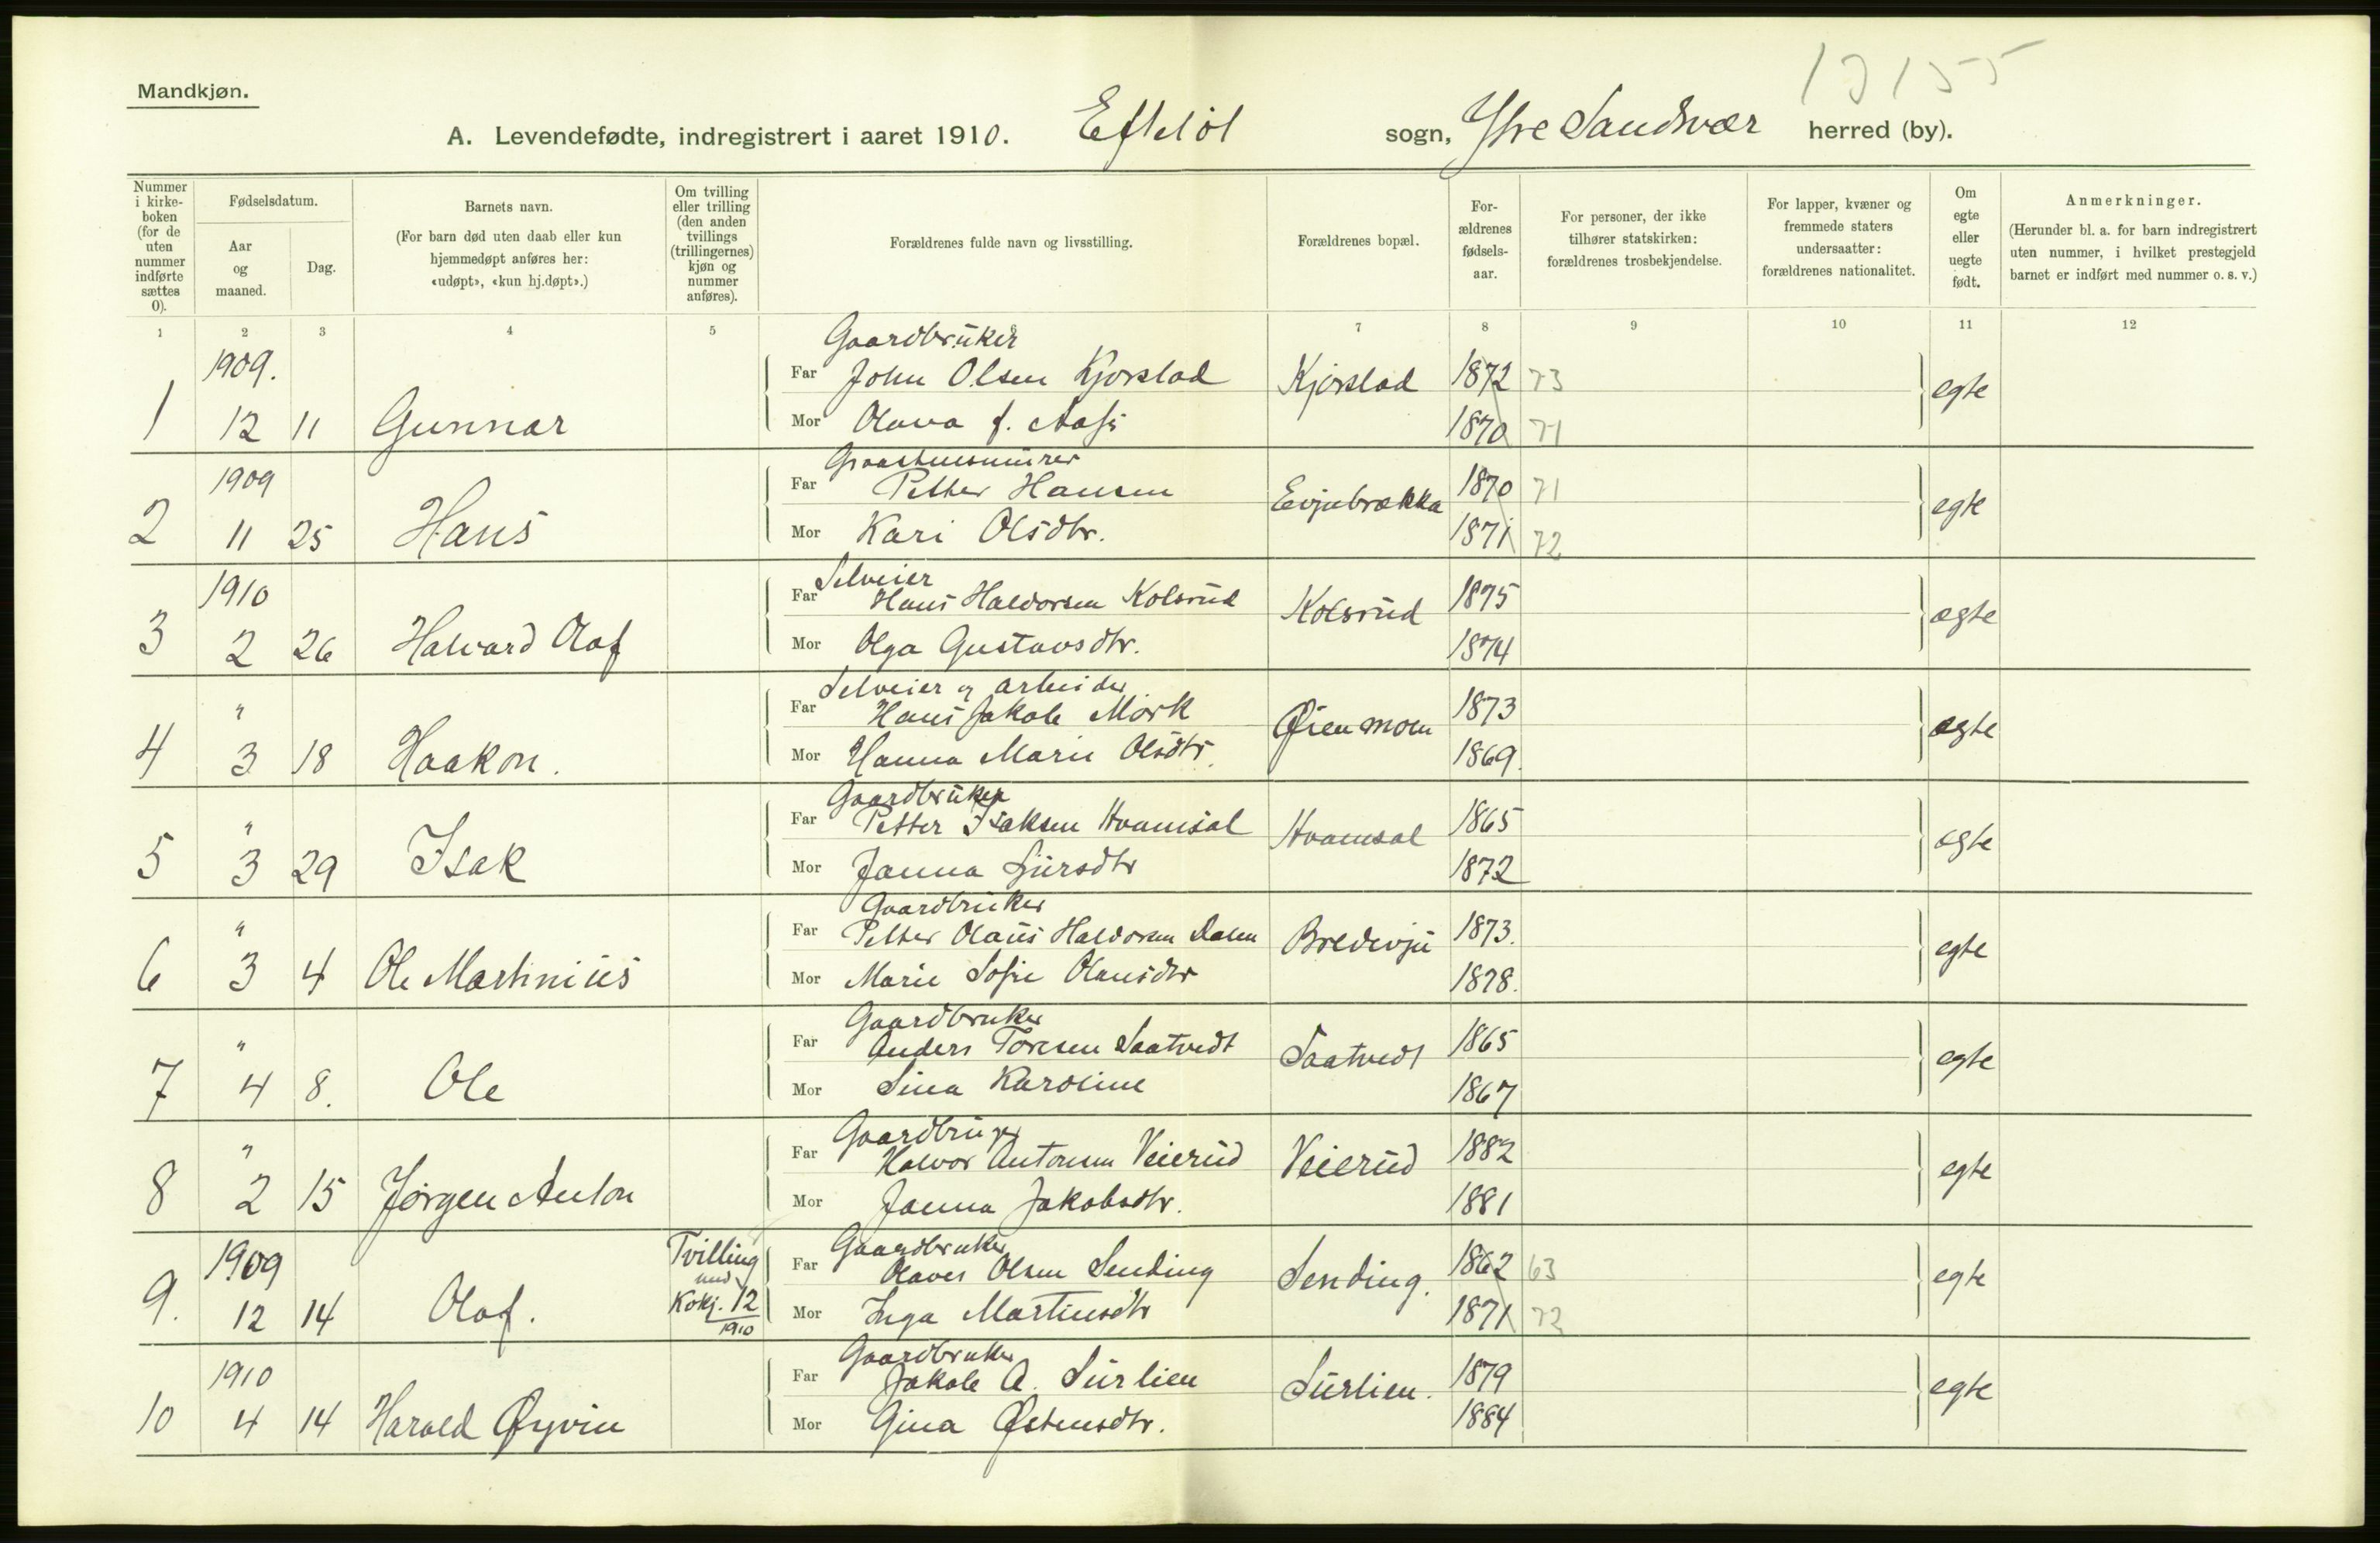 Mandkjøn.
13155
A. Levendefødte, indregistrert i aaret 1910. Efteløt sogn, Ytre Sandsvær herred (by).
Nummer i kirke-boken (for de uten nummer indførte sættes 0).
Fødselsdatum.
Aar og maaned.
Dag.
Barnets navn.
(For barn død uten daab eller kun hjemmedøpt anføres her: «udøpt», «kun hj.døpt».)
Om tvilling eller trilling (den anden tvillings (trillingernes) kjøn og nummer anføres).
Forældrenes fulde navn og livsstilling.
Forældrenes bopæl.
For-ældrenes fødsels-aar.
For personer, der ikke tilhører statskirken: forældrenes trosbekjendelse.
For lapper, kvæner og fremmede staters undersaatter: forældrenes nationalitet.
Om egte eller uegte født.
Anmerkninger.
(Herunder bl. a. for barn indregistrert uten nummer, i hvilket prestegjeld barnet er indført med nummer o. s. v.)
1 2 3 4 5 6 7 8 9 10 11 12
Gaardbruker
1909.
Far John Olsen Kjørstad Kjørstad 1872 73
1 12 11 Gunnar egte
Mor Olava f. Aas 1870 71
Graastensmurer
1909
Far Petter Hansen Evjubrækka 1870 71
2 11 25 Hans egte
Mor Kari Olsdtr. 1871 72
Selveier
1910
Far Hans Haldorsen Kolsrud Kolsrud 1875
3 2 26 Halvard Olaf ægte
Mor Olga Gustavsdtr. 1874
Selveier og arbeider
"
Far Hans Jakob Mørk Øienmoen 1873
4 3 18 Haakon. ægte
Mor Hanna Marie Olsdtr. 1869.
Gaardbruker
"
Far Petter Isaksen Hvamsal Hvamsal 1865
5 3 29 Isak egte
Mor Janna Sjursdtr 1872
Gaardbruker
"
Far Petter Olaus Haldorsen Dalen Bredevju 1873.
6 3 4 Ole Martinius egte
Mor Marie Sofie Olausdtr 1878.
Gaardbruker
"
Far Anders Toresen Saatvedt Saatvedt 1865
7 4 8. Ole egte
Mor Sina Karoline 1867
Gaardbruger
"
Far Halvor Antonsen Veierud Veierud 1882
8 2 15 Jørgen Anton egte
Mor Janna Jakobsdtr. 1881
Gaardbruker
1909
Tvilling
med
Kvkj. 12
1910
Far Olaves Olsen Sending Sending. 1862 63
9. 12 14 Olaf. egte
Mor Inga Martinsdtr 1871 72
Gaardbruker
1910
Far Jakob A. Surlien Surlien. 1879
10 4 14 Harald Øyvin egte
Mor Gina Østensdtr. 1884